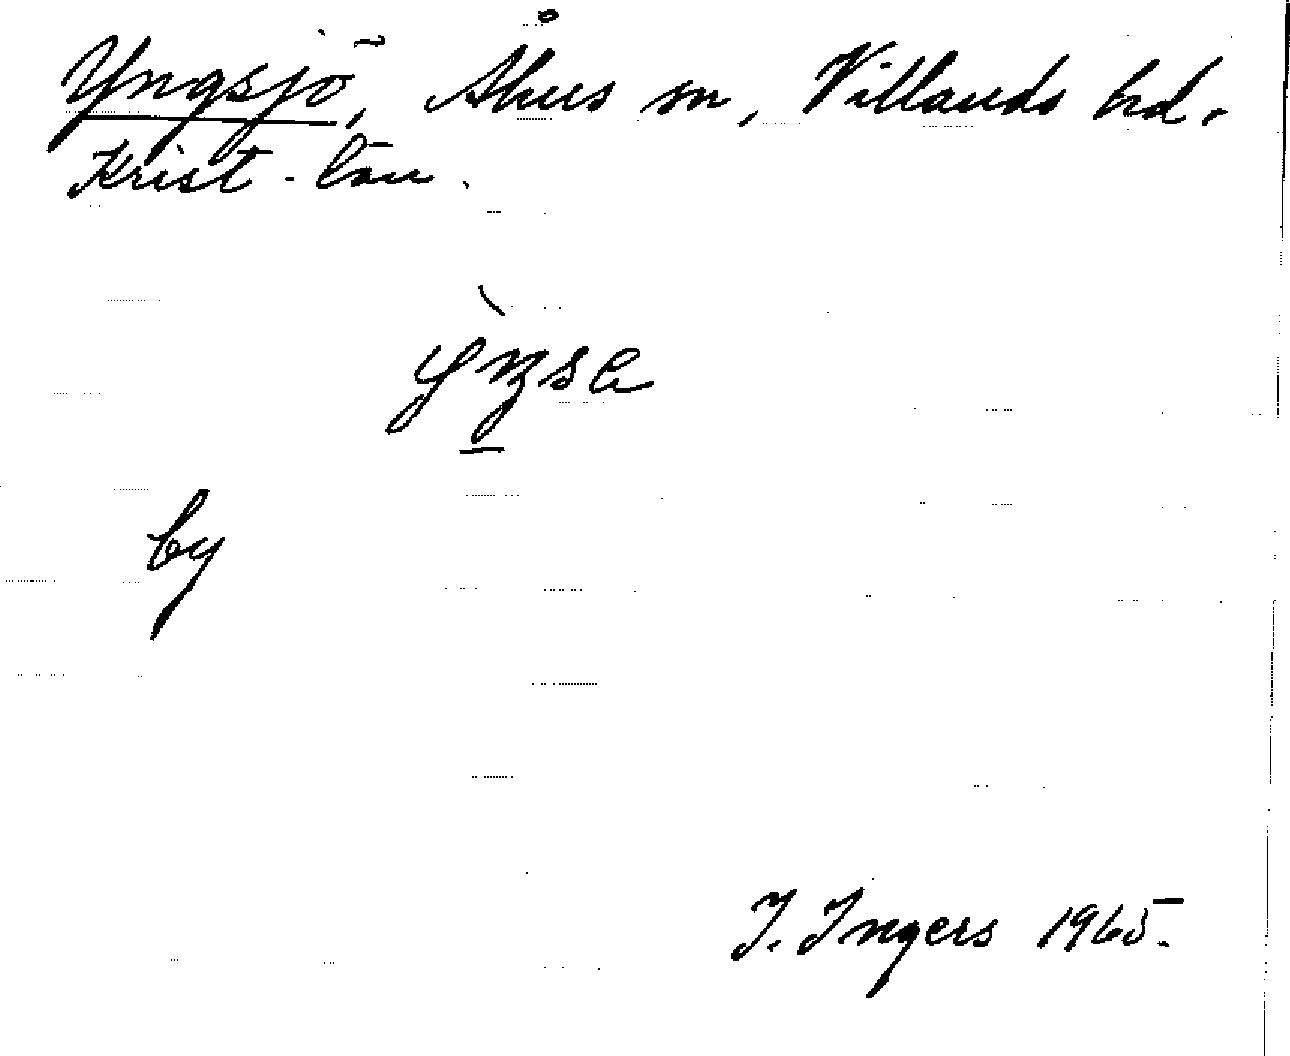 Yngsjö, Åhus sn, Villands hd.
Krist. län.
by
I. Ingers 1965.